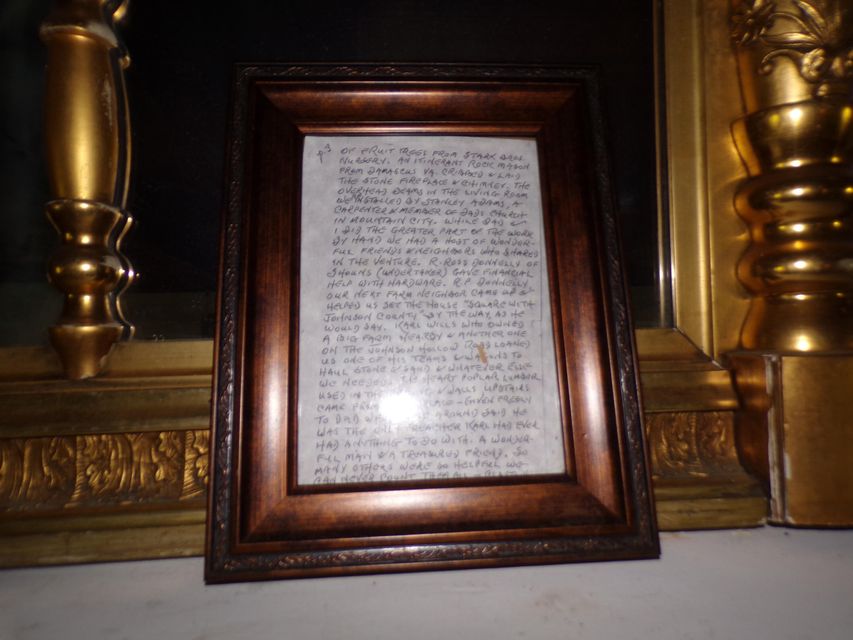 P3 OF FRUIT TREES FROM STARK BROS.
NURSERY. AN ITINERANT ROCK MASON
FROM DAMASCUS VA. & LAID
THE STONE FIREPLACE & CHIMNEY. THE
OVERHEAD BEAMS IN THE LIVING ROOM
WERE INSTALLED BY STANLEY ADAMS, A
CARPENTER & MEMBER OF DADS CHURCH
IN MOUNTAIN CITY. WHILE DAD &
I DID THE GREATER PART OF THE WORK
BY HAND WE HAD A HOST OF WONDER-
FUL FRIENDS & NEIGHBORS WHO SHARED
IN THE VENTURE. R. ROSS DONNELLY OF
SHOUNS (UNDERTAKER) GAVE FINANCIAL
HELP WITH HARDWARE. R.P. DONNELLY,
OUR NEXT FARM NEIGHBOR CAME UP &
HELPED US SET THE HOUSE "SQUARE WITH
JOHNSON COUNTY" BY THE WAY, AS HE
WOULD SAY. KARL WILLS WHO OWNED
A BIG FARM NEARBY & ANOTHER ONE
ON THE JOHNSON HOLLOW ROAD LOANED
US ONE OF HIS TEAMS & TO
HAUL STONE & SAND & WHATEVER ELSE
WE NEEDED. THE HEART POPLAR LUMBER
USED IN THE & WALLS UPSTAIRS
CAME FROM - GIVEN FREELY
TO DAD AROUND SAID HE
WAS THE ONLY PREACHER KARL HAD EVER
HAD ANYTHING TO DO WITH. A WONDER-
FUL MAN & A TREASURED FRIEND. SO
MANY OTHERS WERE SO HELPFUL WE
CAN NEVER COUNT THEM ALL -